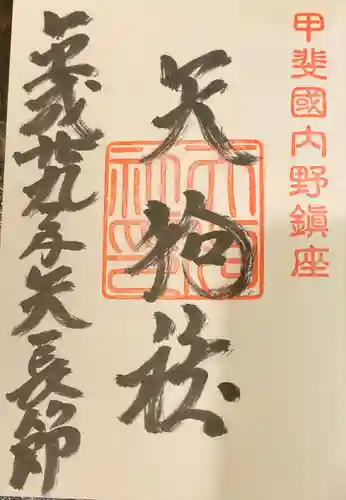 甲斐國内野鎮座
天狗社
平成廿九年天長節